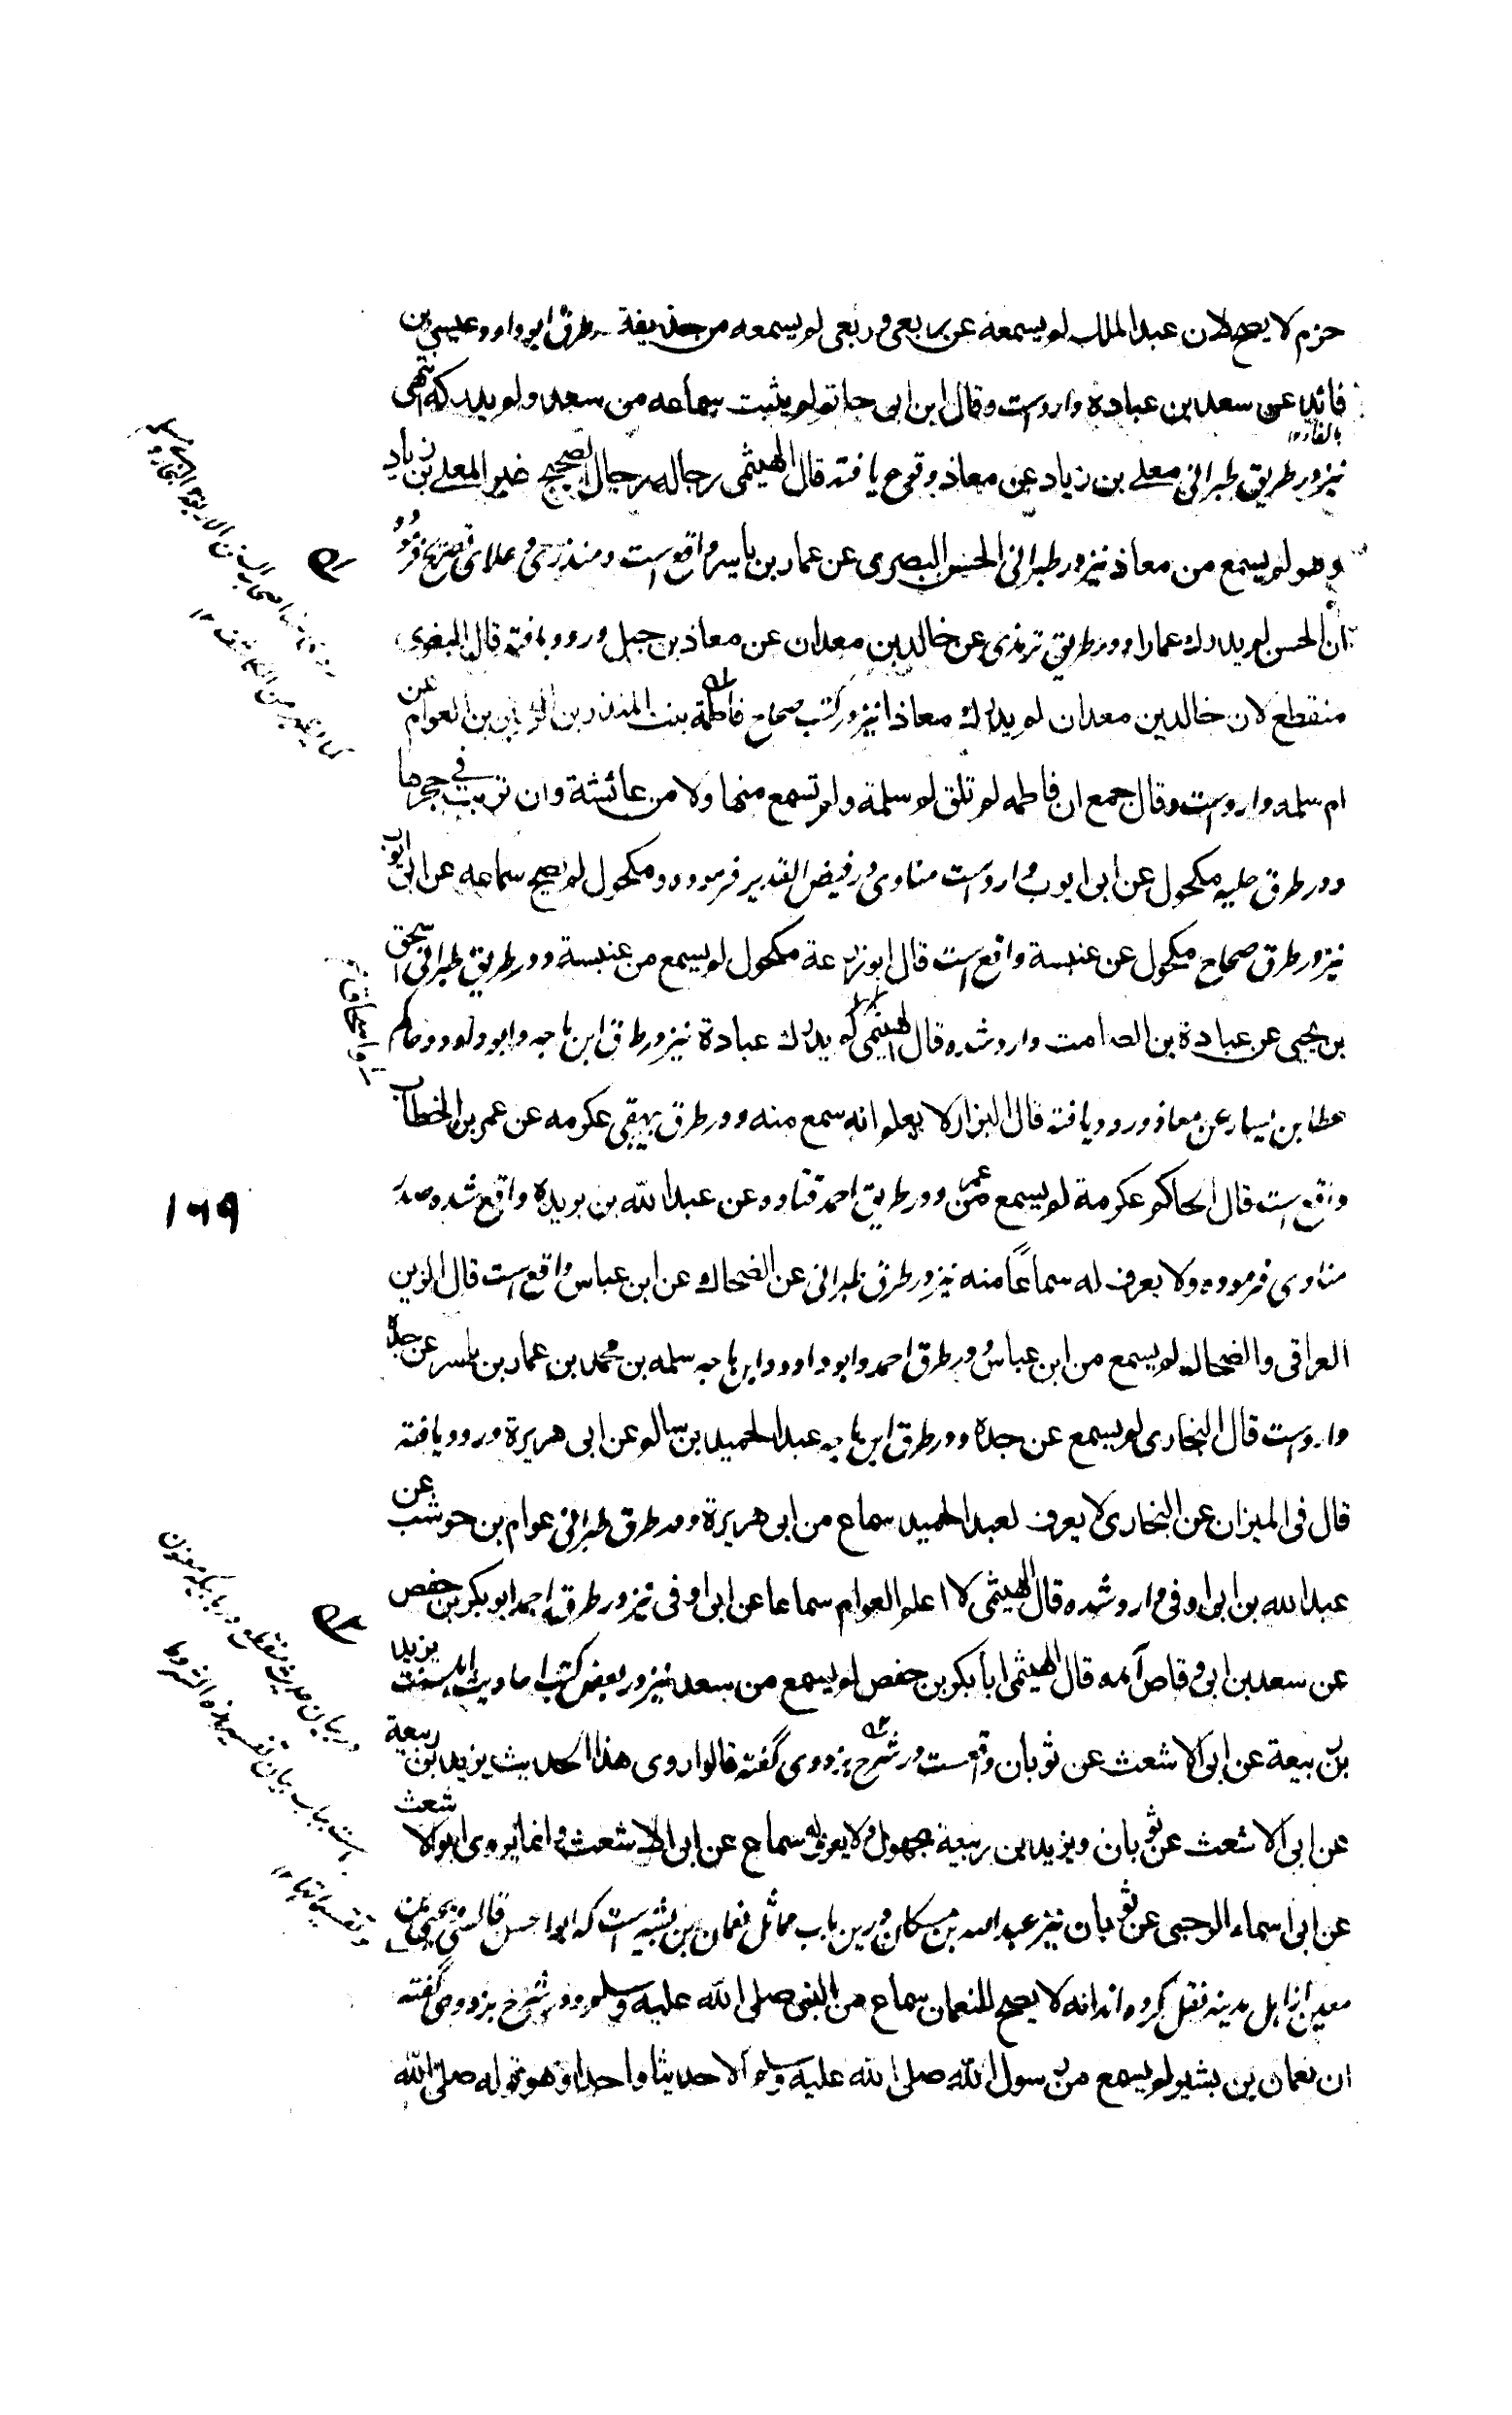 حزم لا يصح لان عبد الملك لم يسمعه عن ربعي و ربعي لم يسمعه من حذيفة و در طرق ابو داود عيسى بن
فائد عن سعد بن عبادة وارد است و قال ابن ابى حاتم لم يثبت سماعه من سعد و لم يدركه انتهى
بالفاء ١٢
نيز در طريق طبرانى معلے بن زياد عن معاذ وقوع يافته قال الهيثمى رجاله رجال الصحيح غير المعلے بن زياد
و هو لم يسمع من معاذ نيز در طبرانى الحسن البصرى عن عمار بن ياسر واقع است و منذرى و علائى تصريح فرموده
ان الحسن لم يدرك عمارا و در طريق ترمذى عن خالد بن معدان عن معاذ بن جبل ورود يافته قال البغوى
منقطع لان خالد بن معدان لم يدرك معاذا نيز در كتب صحاح فاطمة بنت المنذر بن الزبير بن العوام عن
ام سلمه وارد است و قال جمع ان فاطمه لم تلق ام سلمة و لم تسمع منها ولا من عائشة وان تربت فى حجرها
و در طرق حليه مكحول عن ابى ايوب وارد است مناوى در فيض القدير فرموده و مكحول لم يصح سماعه عن ابى ايوب
نيز در طرق صحاح مكحول عن عنبسة واقع است قال ابو زرعة مكحول لم يسمع من عنبسة و در طريق طبرانى اسحق
بن يحيى عن عبادة بن الصامت وارد شده قال الهيثمى لم يدرك عبادة نيز در طرق ابن ماجه و ابو داود و حاكم
عطا بن يسار عن معاذ ورود يافته قال البزار لا يعلم انه سمع منه و در طرق بيهقى عكرمه عن عمر بن الخطاب
واقع است قال الحاكم عكرمة لم يسمع من عمر و در طريق احمد قتاده عن عبد الله بن بريدة واقع شده
١٦٩
مناوى فرموده ولا يعرف له سماعاً منه نيز در طرق طبرانى عن الضحاك عن ابن عباس واقع است قال الزين
العراقى والضحاك لم يسمع من ابن عباس و در طرق احمد و ابو داود و ابن ماجه سلمه بن محمد بن عمار بن ياسر عن جده
وارد است قال البخارى لم يسمع عن جده و در طرق ابن ماجه عبد الحميد بن سالم عن ابى هريرة ورود يافته
قال فى الميزان عن البخارى لا يعرف لعبد الحميد سماع من ابى هريرة و در طرق طبرانى عوام بن حوشب عن
عبد الله بن ابى اوفى وارد شده قال الهيثمى لا اعلم العوام سماعا عن ابى اوفى نيز در طرق احمد ابو بكر بن حفص
عن سعد بن ابى وقاص آمده قال الهيثمى ابا بكر بن حفص لم يسمع من سعد نيز در بعض كتب احاديث اهلسنت يزيد
بن ربيعة عن ابى الاشعث عن ثوبان واقعست در شرح بزدوى گفته قالوا روى هذا الحديث يزيد بن ربيعة
عن ابى الاشعث عن ثوبان و يزيد بن ربيعة مجهول ولا يعرف له سماع عن ابى الاشعث و انما يروى ابو الاشعث
عن ابى اسماء الرحبى عن ثوبان نيز عبد الله بن مسكان درين باب مماثل نعمان بن بشير است كه ابو الحسن قال يحيى بن
معين از اهل مدينه نقل كرده اند انه لا يصح للنعمان سماع من النبى صلى الله عليه وسلم و در شرح بزدوى گفته
ان نعمان بن بشير لم يسمع من رسول الله صلى الله عليه وسلم الا حديثا واحدا و هو قوله صلى الله